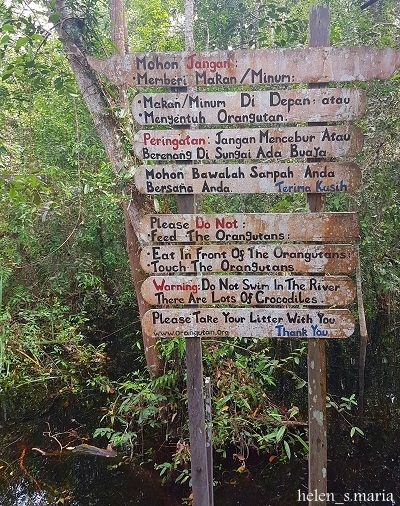 Mohon Jangan:
•Memberi Makan/Minum:
•Makan/Minum Di Depan: atau
•Menyentuh Orangutan.
Peringatan: Jangan Mencebur Atau
Berenang Di Sungai Ada Buaya
Mohon Bawalah Sampah Anda
Bersama Anda. Terima Kasih
Please Do Not:
Feed The Orangutans:
•Eat In Front Of The Orangutans:
•Touch The Orangutans
Warning: Do Not Swim In The River
There Are Lots Of Crocodiles.
Please Take Your Litter With You
www.orangutan.org Thank You
helen_s.maria